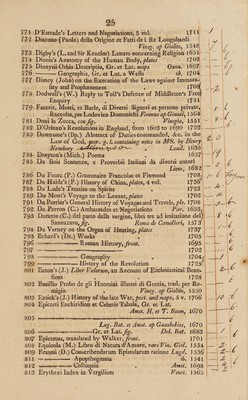 25
771 D'Estrade's Letters and Negotiations, 5 vol. 1711
772 Diacono (Paolo) della Origine et Fatti de i Re Longobardi
Vineg. ap Giolito, 1548
773 Digby's (L. and Sir Kenelm) Letters concerning Religion 1651
774 Dionis's Anatomy of the Human Body, plates 1703
775 Dionysii Orbis Descriptio, Gr. et Lat. maps Oxon. 1697
776 ——— Geographia, Gr. et Lat. a Wells ib, 1704
777 Disney (John) on the Execution of the Laws against Immorality and Prophaneness 1708
778 Dodwell's (W.) Reply to Toll's Defence of Middleton's Free Enquiry 1751
779 Facetie, Motti, et Burle, di Diversi Signori et persone private, Raccolse, per Lodovico Domenichi Firenze ap Giunti, 1564
781 Doni la Zucca, con fig. Vinegia, 1551
782 D'Orlean's Revolutions in England, from 1603 to 1690 1722
783 Downame's (Bp.) Abstract of Duties commanded, &c. in the Law of God, port. g. l. containing note in MS. by Henry Newberry Lond. 1635
784 Drayton's (Mich.) Poems 1637
785 Du Bois Sentenze, e Proverbii Italiani da diversi autori
Lione, 1683
786 Du Fourz (P.) Grammaire Françoise et Flamend 1705
787 Du Halde's (P.) History of China, plates, 4 vol. 1736
788 Du Lude's Treatise on Spirits 1723
789 Du Mont's Voyage to the Levant, 1702
791 Du Perrier's General History of Voyages and Travels, pls. 1708
792 Du Perron (C.) Ambassades et Negotiations Par. 1635
793 Durante (C.) del parto della vergine, libri tre ad imitatione del Sannazaro, fig. Roma de Cavalleri, 1573
794 Du Verney on the Organ of Hearing, plates 1737
795 Echard's (Dr.) Works 1705
796 ——— Roman History, front. 1695
797 ——— 1702
798 ——— Geography 1704
799 ——— History of the Revolution 1725
801 Ecton's (J.) Liber Valorum, an Account of Ecclesiastical Benefices 1728
802 Emilio Probo de gli Huomini illustri di Grecia, trad. per Remigio Vineg. ap Giolito, 1550
803 Entick's (J.) History of the late War, port. and maps, 5 v. 1766
804 Epicteti Enchiridion et Cebetis Tabula, Gr. et Lat.
Amst. H. et T. Boom, 1670
805 ———
Lug. Bat. et Amst. ap Gaasbekios, 1670
806 ——— Gr. et Lat. fig. Del. Bat. 1683
807 Epictetus, translated by Walker, front. 1701
808 Equicola (M.) Libro di Natura d'Amore, raro Vin. Giol. 1554
809 Erasmi (D.) Conscribendarum Epistolarum ratione Lugd. 1536
811 ——— Apophthegmata 1541
812 ——— Colloquia Amst. 1698
813 Erythræi Index in Vergilium Venet. 1565